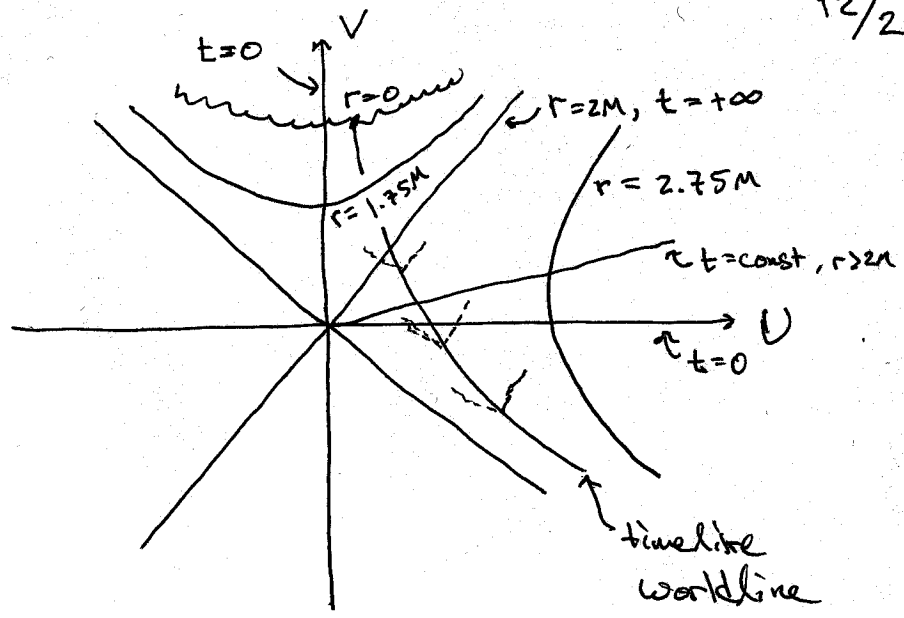 12/2
V
t=0
r=0
r=2M, t=+∞
r=1.75M
r = 2.75M
t=const, r>2M
U
t=0
timelike
worldline